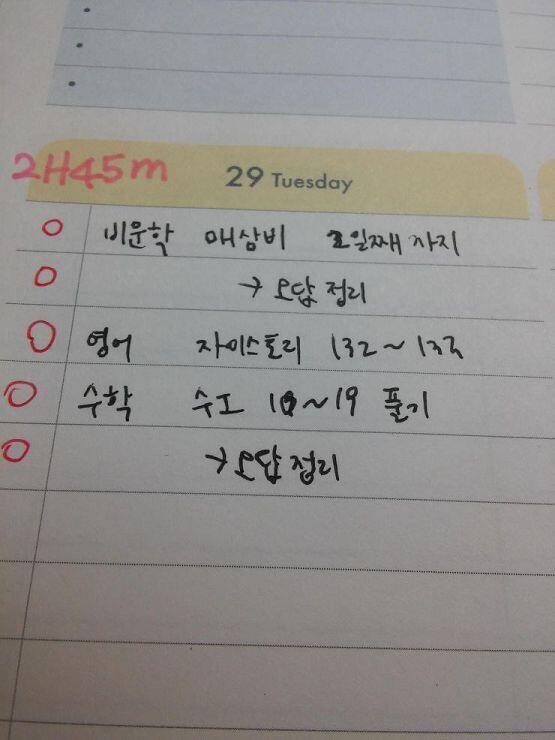 2H45m 29 Tuesday
비문학 매삼비 2일째 까지
→ 오답 정리
영어 자이스토리 132~133
수학 수도 18~19 풀기
→ 오답 정리